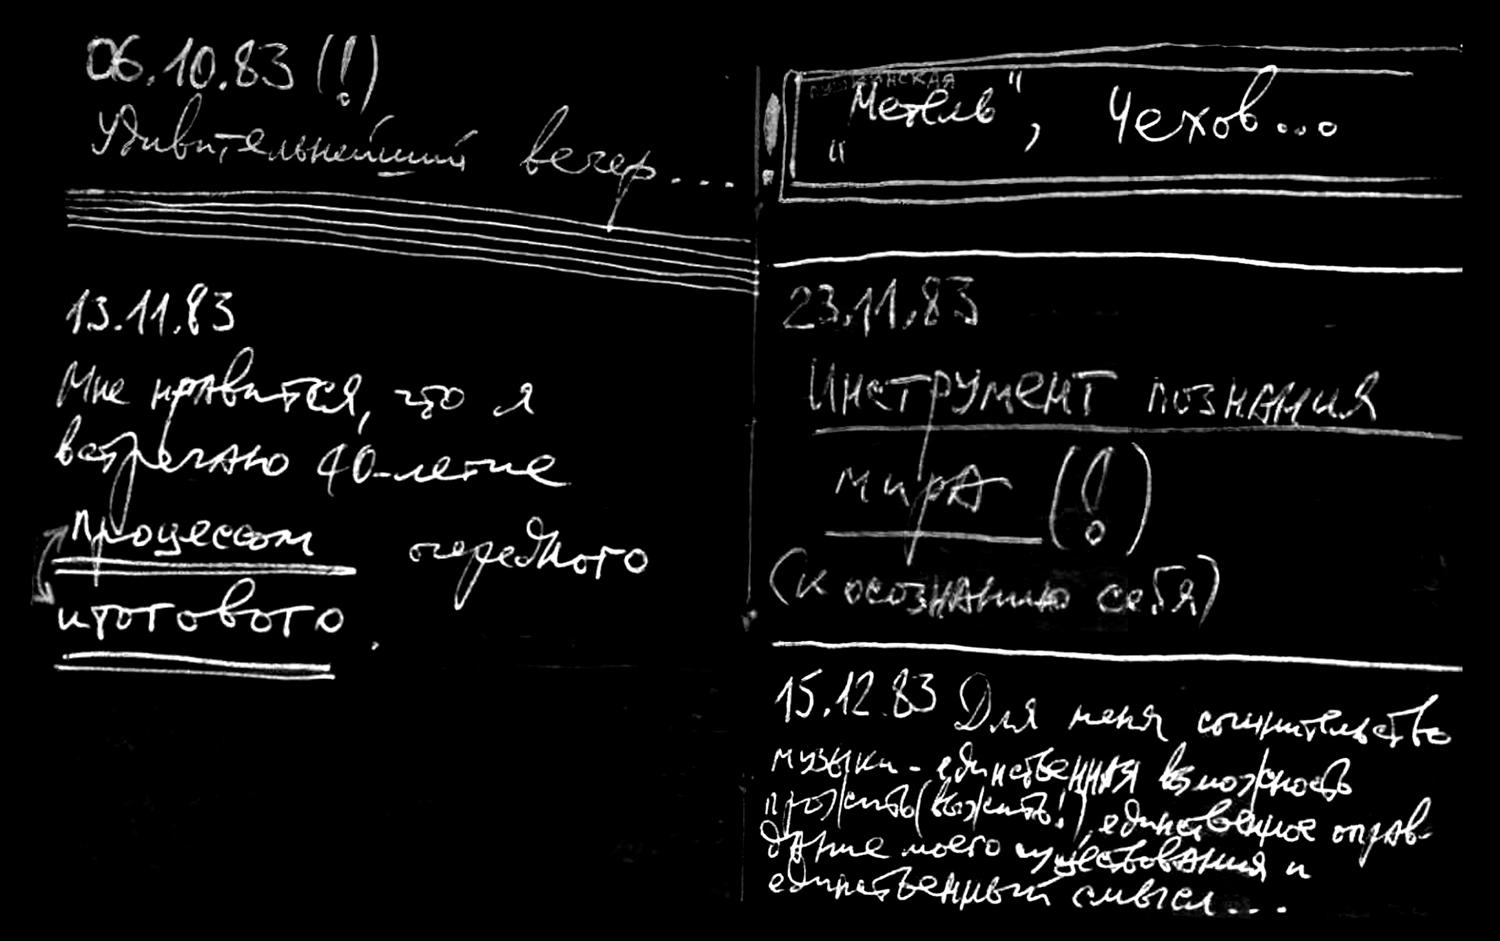 06.10.83 (!)
Удивительнейший вечер...
13.11.83
Мне нравится, что я
встречаю 40-летие
процессом очередного
итогового.
пушкинская
"Метель", Чехов...
23.11.83
Инструмент познания
мира (!)
(к осознанию себя)
15.12.83 Для меня сочинительство
музыки - единственная возможность
прожить (выжить!), единственное оправ-
дание моего существования и
единственный смысл...